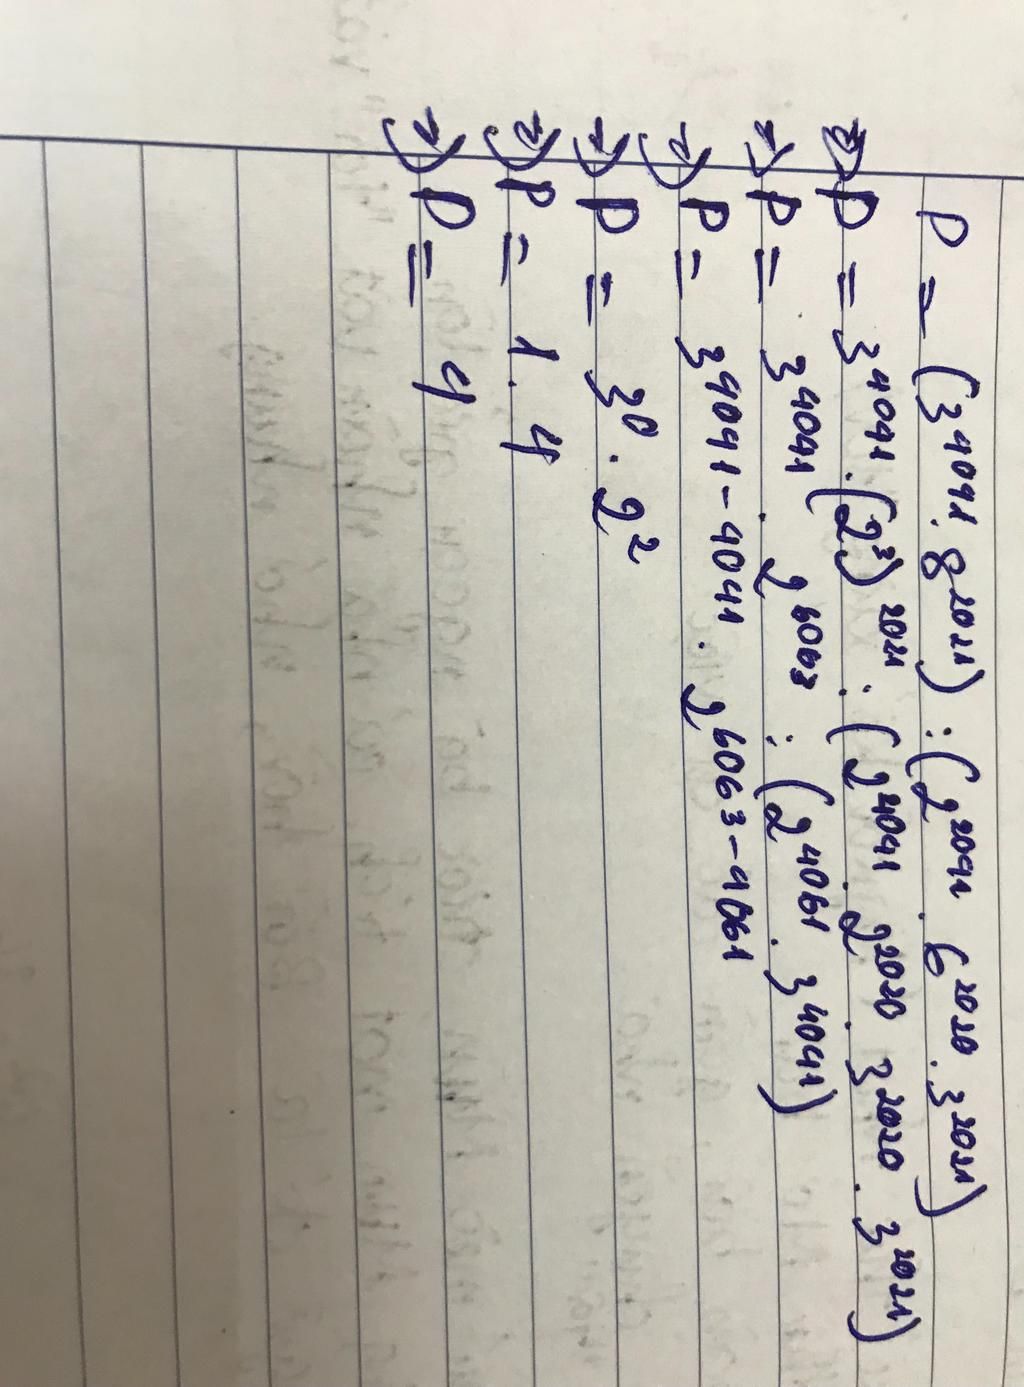 P = (3^4041 . 8^2021) : (2^2041 . 6^2020 . 3^2021)
=> P = 3^4041 . (2^3)^2021 : (2^4041 . 2^2020 . 3^2020 . 3^2021)
=> P = 3^4041 . 2^6063 : (2^4061 . 3^4041)
=> P = 3^4041-4041 . 2^6063-4061
=> P = 3^0 . 2^2
=> P = 1 . 4
=> P = 4